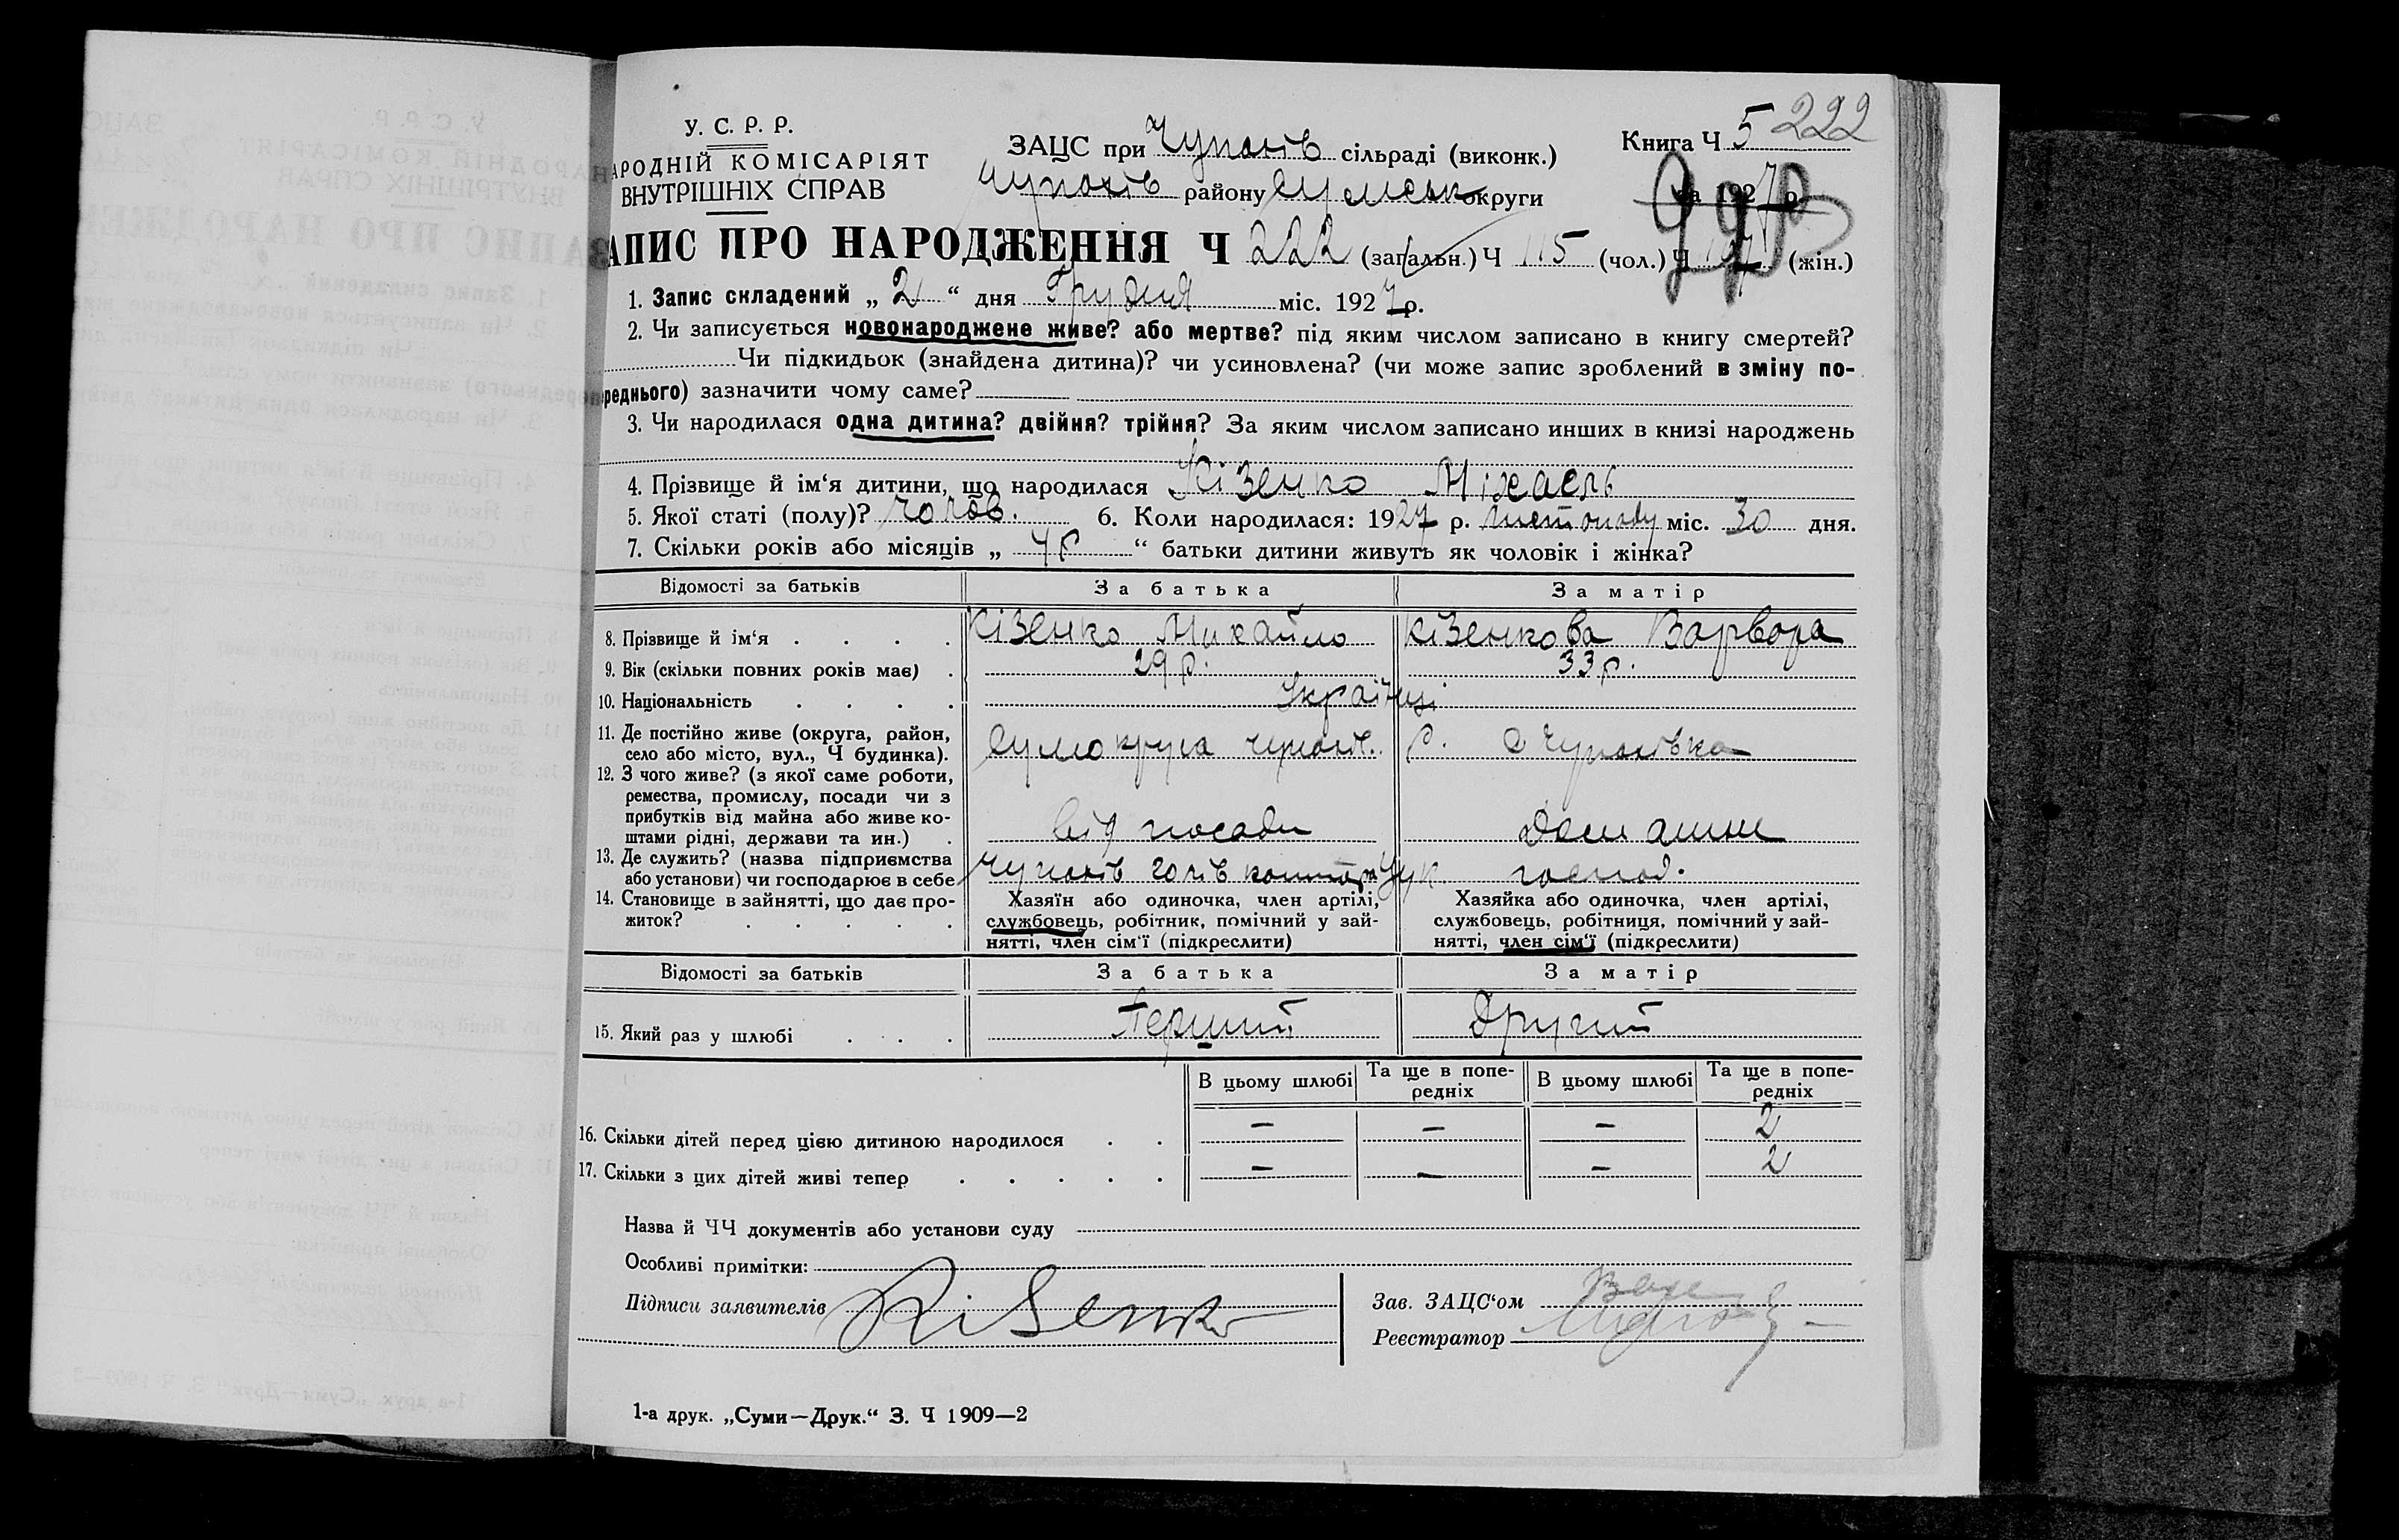 У. С. Р. Р.
АРОДНІЙ КОМІСАРІЯТ
ВНУТРІШНІХ СПРАВ
ЗАЦС при Чупахів сільраді (виконк.)
Чупахів району Сумськ округи
Книга Ч 5 222
за 1927 р.
АПИС ПРО НАРОДЖЕННЯ Ч 222 (загальн.) Ч 115 (чол.) Ч (жін.)
1. Запис складений „ 2 “ дня Грудня міс. 1927 р.
2. Чи записується новонароджене живе? або мертве? під яким числом записано в книгу смертей?
Чи підкидьок (знайдена дитина)? чи усиновлена? (чи може запис зроблений в зміну по-
переднього) зазначити чому саме?
3. Чи народилася одна дитина? двійня? трійня? За яким числом записано инших в книзі народжень
4. Прізвище й ім‘я дитини, що народилася Кізенко Міхаель
5. Якої статі (полу)? чолов. 6. Коли народилася: 1927 р. листопаду міс. 30 дня.
7. Скільки років або місяців „ “ батьки дитини живуть як чоловік і жінка?
Відомості за батьків За батька За матір
8. Прізвище й ім‘я Кізенко Михайло Кізенкова Варвора
9. Вік (скільки повних років має) 29 р. 33 р.
10. Національність Українці
11. Де постійно живе (округа, район,
село або місто, вул., Ч будинка). Сумокруга чупахів. р. с Чупахівка
12. З чого живе? (з якої саме роботи,
ремества, промислу, посади чи з
прибутків від майна або живе ко-
штами рідні, держави та ин.) від посади Домашнє
13. Де служить? (назва підприємства
або установи) чи господарює в себе Чупахів голів контора господ.
14. Становище в зайнятті, що дає про-
житок?
Хазяїн або одиночка, член артілі,
службовець, робітник, помічний у зай-
нятті, член сім‘ї (підкреслити)
Хазяйка або одиночка, член артілі,
службовець, робітниця, помічний у зай-
нятті, член сім‘ї (підкреслити)
Відомості за батьків За батька За матір
15. Який раз у шлюбі Перший Другий
В цьому шлюбі Та ще в попе-
редніх В цьому шлюбі Та ще в попе-
редніх
16. Скільки дітей перед цією дитиною народилося — — — 2
17. Скільки з цих дітей живі тепер — — — 2
Назва й ЧЧ документів або установи суду
Особливі примітки:
Підписи заявителів KiSenko
Зав. ЗАЦС‘ом
Реєстратор
1-а друк. „Суми—Друк.“ З. Ч 1909—2